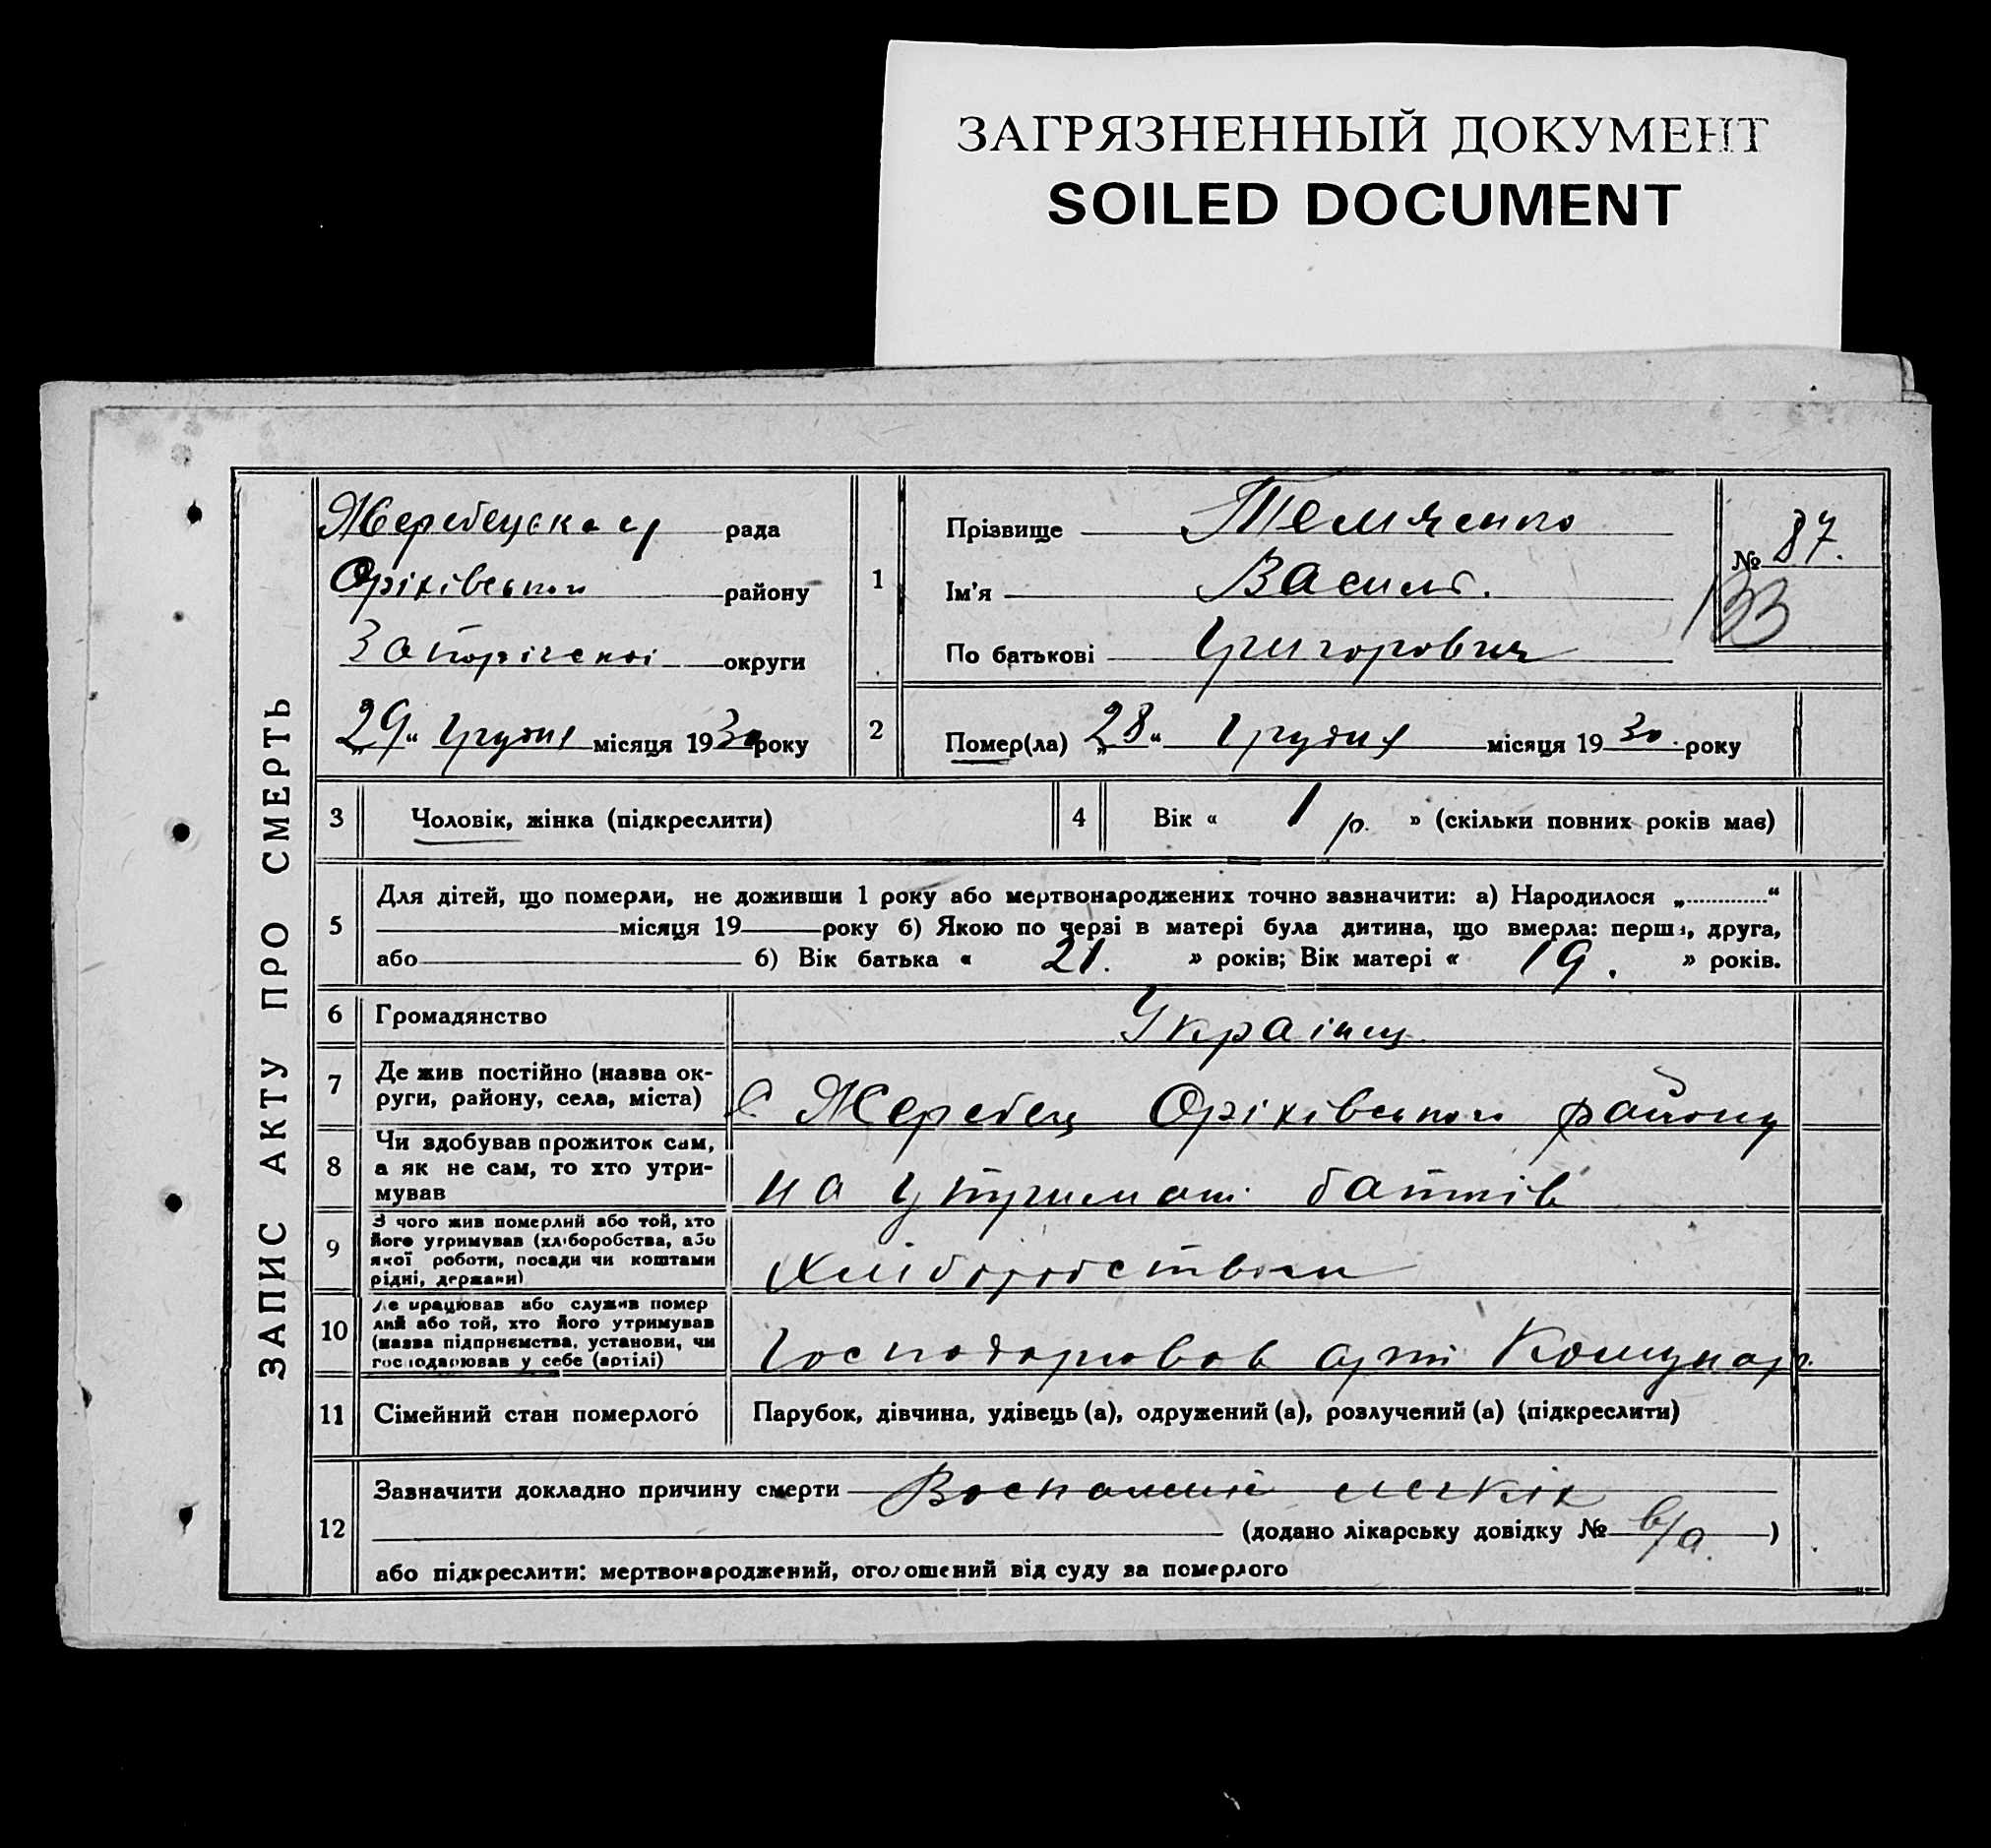 ЗАГРЯЗНЕННЫЙ ДОКУМЕНТ
SOILED DOCUMENT
ЗАПИС АКТУ ПРО СМЕРТЬ
Жеребецька с/ рада
Оріхівського району
Запоріської округи
„29“ Грудня місяця 1930 року
1
Прізвище Темченко
Ім'я Василь.
По батькові Григорович
№ 87.
133
2
Помер(ла) „28“ Грудня місяця 1930. року
3 Чоловік, жінка (підкреслити)
4 Вік « 1 р. » (скільки повних років має)
5
Для дітей, що померли, не доживши 1 року або мертвонароджених точно зазначити: а) Народилося „.............“
місяця 19 року б) Якою по черзі в матері була дитина, що вмерла: перша, друга,
або б) Вік батька « 21. » років; Вік матері « 19. » років.
6 Громадянство Українець
7 Де жив постійно (назва ок-
руги, району, села, міста) с Жеребець Оріхівського району
8 Чи здобував прожиток сам,
а як не сам, то хто утри-
мував на утримані батьків
9 З чого жив померлий або той, хто
його утримував (хліборобства, або
якої роботи, посади чи коштами
рідні, держави) Хліборобством
10 Де працював або служив помер
лий або той, хто його утримував
(назва підприємства, установи, чи
господарював у себе (артілі) Господарював арт Комунар.
11 Сімейний стан померлого Парубок, дівчина, удівець (а), одружений (а), розлучений (а) (підкреслити)
12
Зазначити докладно причину смерти Воспаленіє легкіх
(додано лікарську довідку № б/а. )
або підкреслити: мертвонароджений, оголошений від суду за померлого